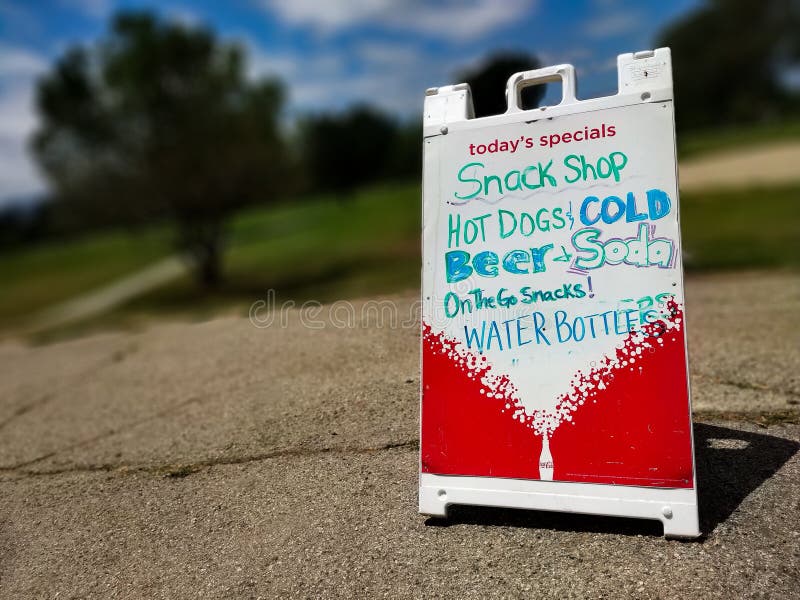 today's specials
Snack Shop
HOT DOGS & COLD
Beer + Soda
On The Go Snacks!
WATER BOTTLES
dreamstime